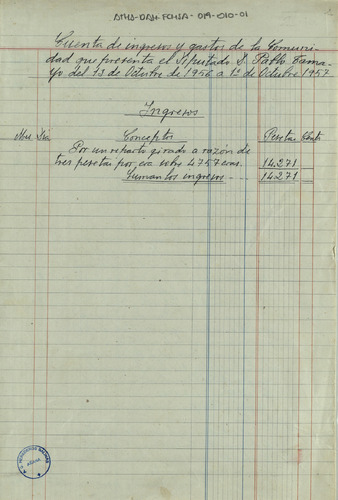 ATHA-DAH-FCHSA-019-010-01
Cuenta de ingresos y gastos de la Comuni-
dad que presenta el Diputado D. Pablo Tama-
yo del 13 de Octubre de 1956 a 1º de Octubre 1957
Ingresos
Mes Día Conceptos Pesetas Cénts
Por un reparto girado a razón de
tres pesetas por era sobre 4757 eras. 14.271
Suman los ingresos - - - 14.271